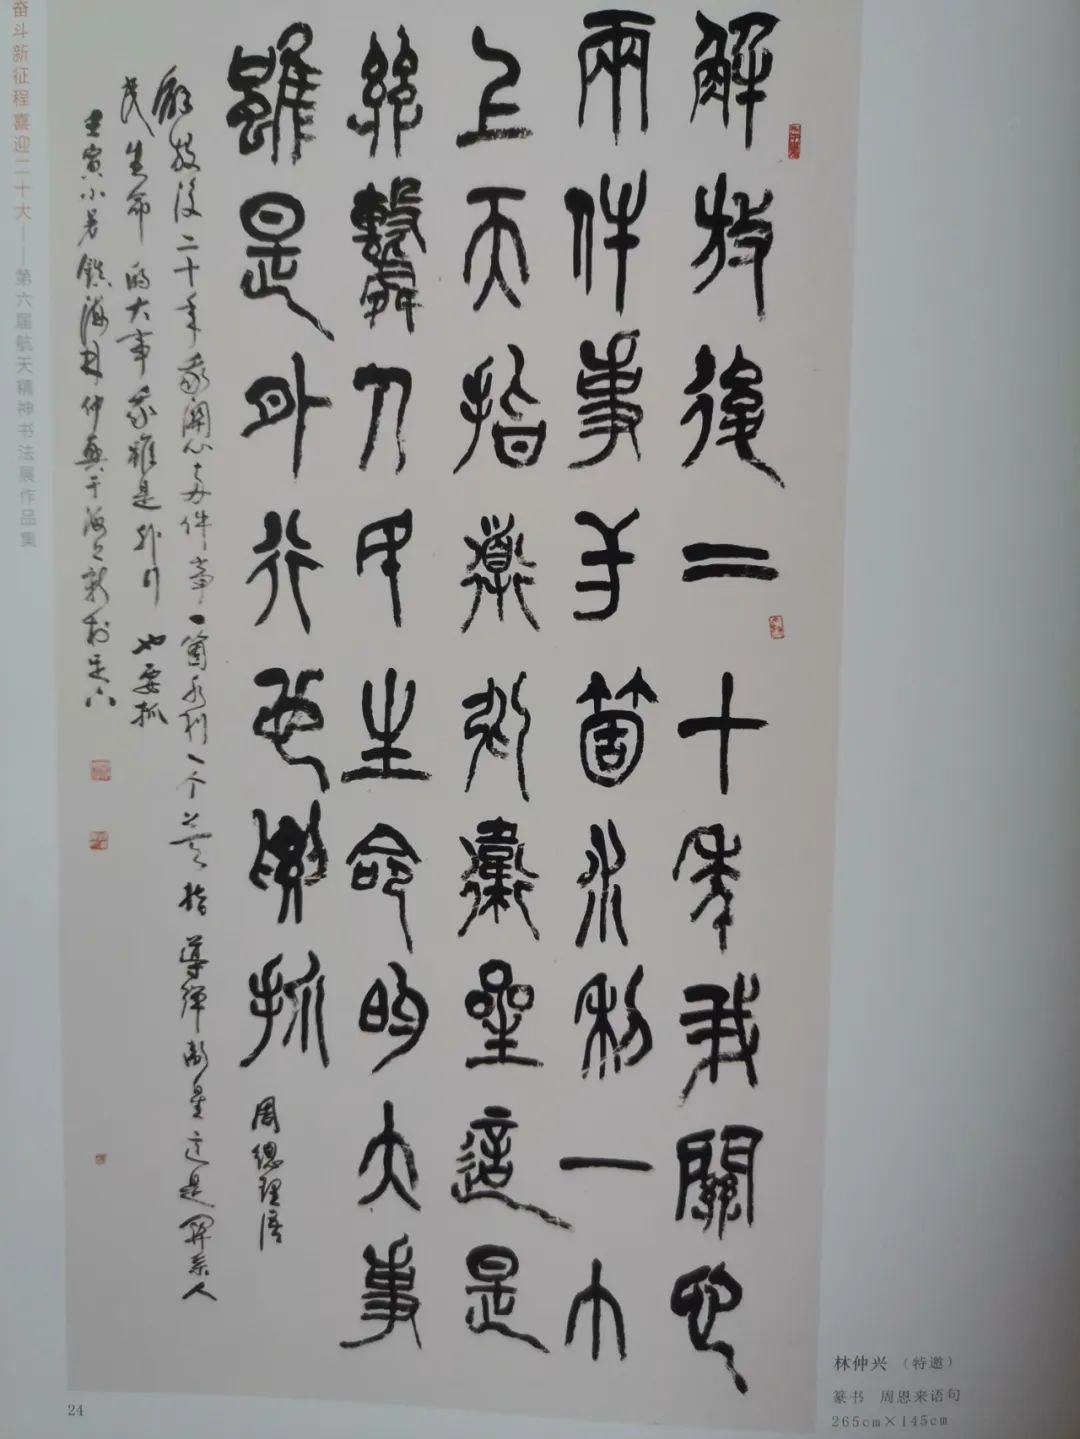 解放後二十年我關心
兩件事箇水利一个
上天指導彈衛星這是
繫人民生命的大事
雖是外行也要抓
周總理語
解放後二十年我関心两件事一箇水利一个上天指導彈衛星這是関系人
民生命的大事我雖是外行也要抓
壬寅小暑鎮海林仲興于海上新村
奋斗新征程喜迎二十大——第六届航天精神书法展作品集
林仲兴 （特邀）
篆书 周恩来语句
265cm×145cm
24